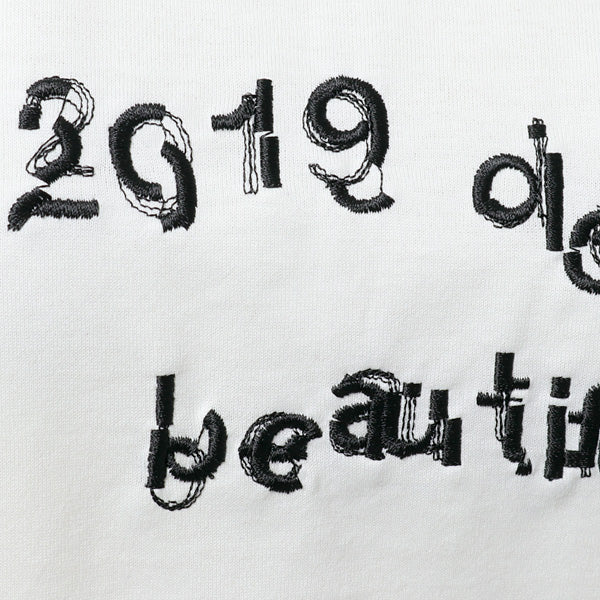 2019 do
beautif